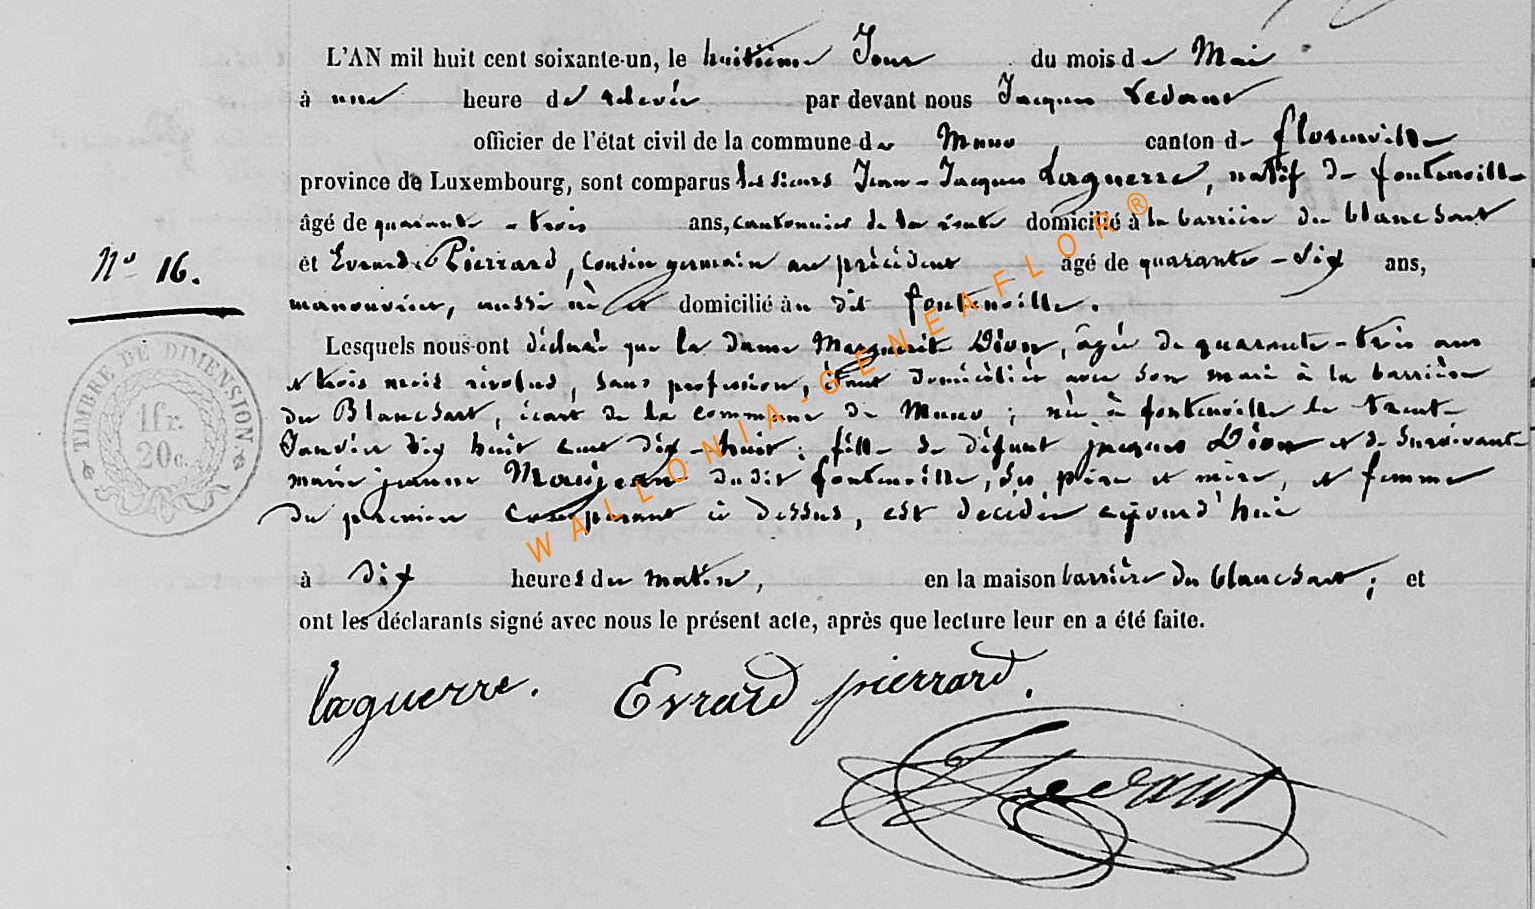 L'AN mil huit cent soixante-un, le huitième Jour du mois de Mai
à une heure de relevée par devant nous Jacques Ledant
officier de l'état civil de la commune de Muno, canton de florenville
province de Luxembourg, sont comparus les sieurs Jean-Jacques Laguerre, natif de fontenoille
âgé de quarante-trois ans, cantonnier de la route domicilié à la barrière du blanchart
et Evrard Pierrard, Cousin germain au précédent âgé de quarante-six ans,
N° 16.
manouvrier, aussi né et domicilié au dit fontenoille.
Lesquels nous ont déclaré que la dame Marguerite Dion, âgée de quarante-trois ans
et trois mois révolus, sans profession, étant domiciliée avec son mari à la barrière
du Blanchart, écart de la commune de Muno ; née à fontenoille le trente
Janvier dix huit cent dix-huit ; fille de défunt jacques Dion et de survivante
marie jeanne Mausjean dudit fontenoille, ses père et mère, et femme
du premier comparant ci dessus, est décédée aujourd'hui
à dix heures du matin, en la maison barrière du blanchart ; et
ont les déclarants signé avec nous le présent acte, après que lecture leur en a été faite.
TIMBRE DE DIMENSION.
1fr.
20c.
laguerre. Evrard pierrard.
Ledant
WALLONIA-GENEAFLOR®